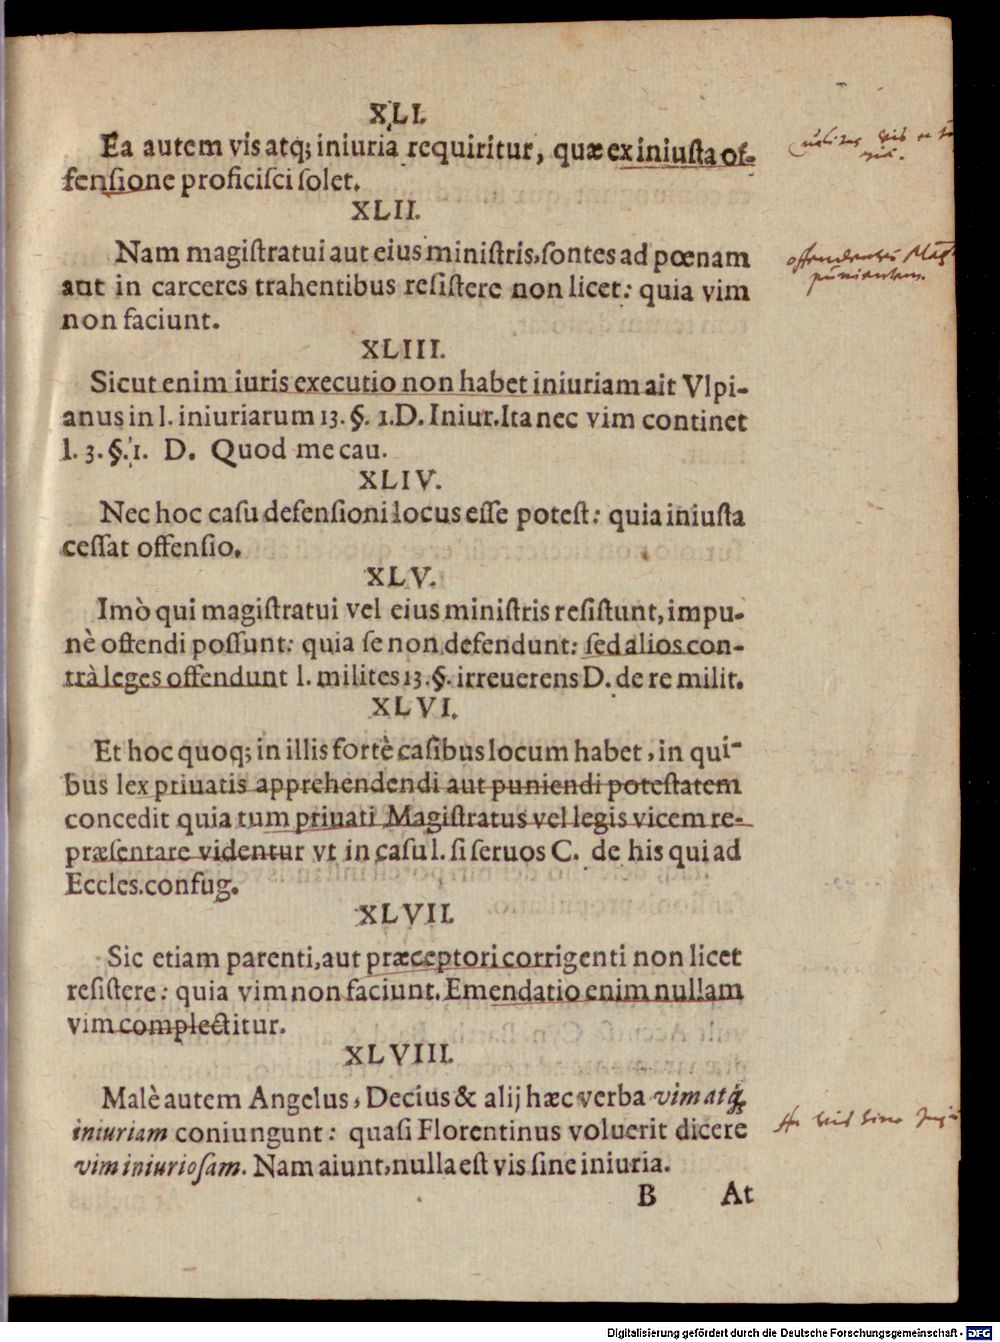 XLI.
Ea autem vis atq; iniuria requiritur, quæ ex iniusta of-
fensione proficisci solet.
XLII.
Nam magistratui aut eius ministris, sontes ad pœnam
aut in carceres trahentibus resistere non licet: quia vim
non faciunt.
XLIII.
Sicut enim iuris executio non habet iniuriam ait Vlpi-
anus in l. iniuriarum 13. §. 1. D. Iniur. Ita nec vim continet
l. 3. §. 1. D. Quod me cau.
XLIV.
Nec hoc casu defensioni locus esse potest: quia iniusta
cessat offensio.
XLV.
Imò qui magistratui vel eius ministris resistunt, impu-
nè offendi possunt: quia se non defendunt: sed alios con-
trà leges offendunt l. milites 13. §. irreuerens D. de re milit.
XLVI.
Et hoc quoq; in illis fortè casibus locum habet, in qui-
bus lex priuatis apprehendendi aut puniendi potestatem
concedit quia tum priuati Magistratus vel legis vicem re-
præsentare videntur vt in casu l. si seruos C. de his qui ad
Eccles. confug.
XLVII.
Sic etiam parenti, aut præceptori corrigenti non licet
resistere: quia vim non faciunt. Emendatio enim nullam
vim complectitur.
XLVIII.
Malè autem Angelus, Decius & alij hæc verba vim atq;
iniuriam coniungunt: quasi Florentinus voluerit dicere
vim iniuriosam. Nam aiunt, nulla est vis sine iniuria.
B At
Digitalisierung gefördert durch die Deutsche Forschungsgemeinschaft - DFG